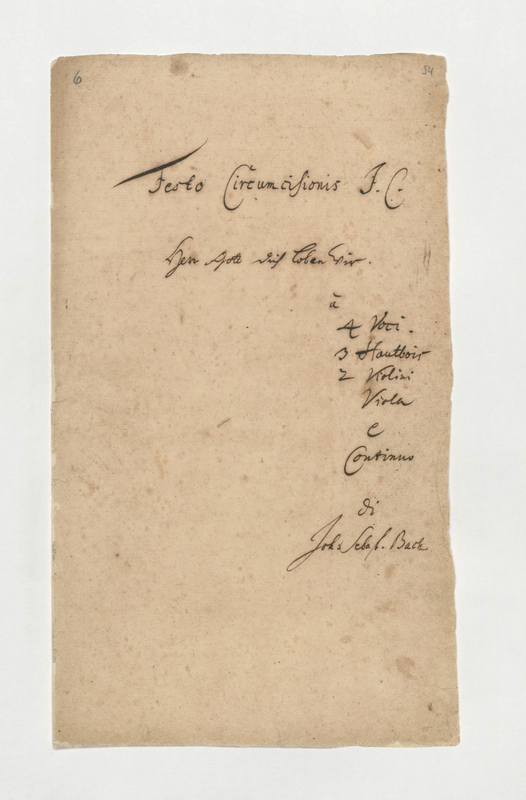 6
54
Festo Circumcisionis J. C.
Herr Gott dich loben wir.
à
4 Voci.
3 Hautbois
2 Violini
Viola
e
Continuo
di
Joh: Sebast. Bach